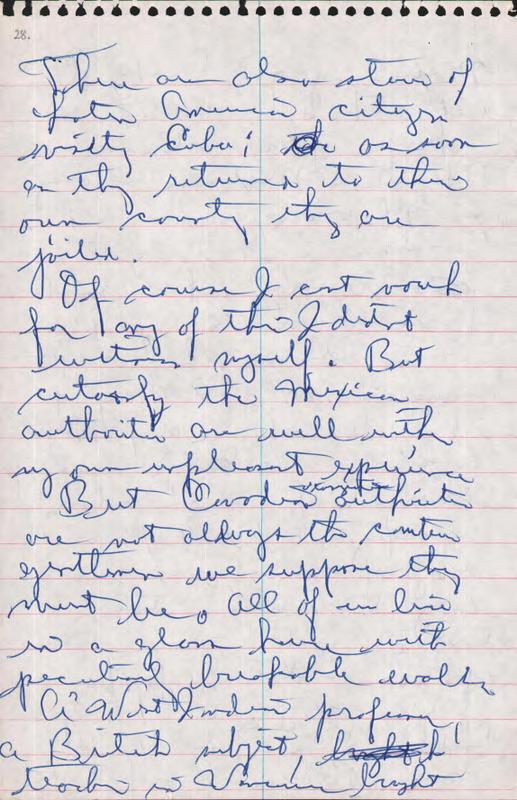 28.
There are also stories of
Latin America citizens
visiting Cuba; as soon
as they returned to their
own country they are
jailed.
Of course I cant vouch
for any of this I didnt
witness myself. But
certainly the Mexican
authorities are well with
my own unpleasant experience
But Canadian authorities
are not always the
gentlemen we suppose they
must be. All of us live
in a glass house with
peculiarly breakable walls.
A West Indian professor,
a British subject,
teacher in brought